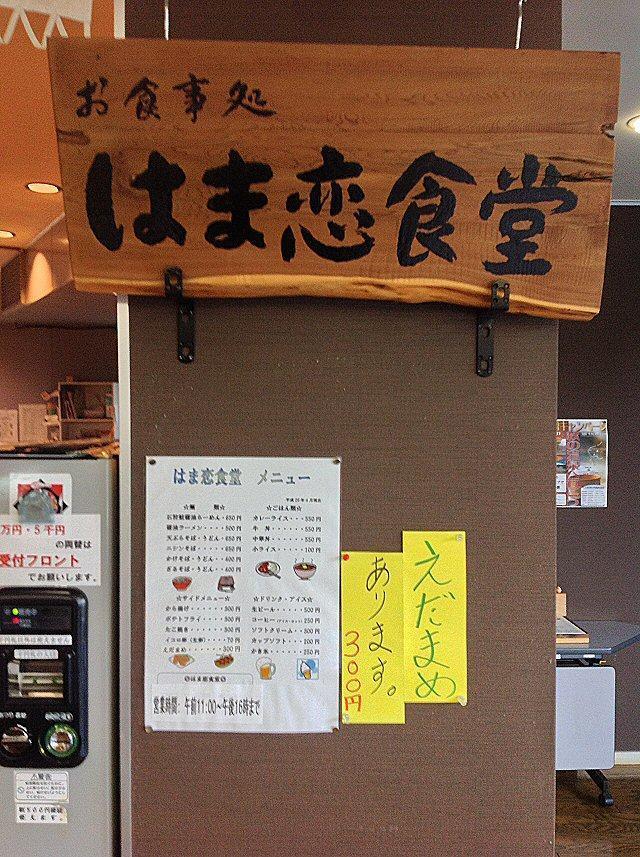 お食事処
はま恋食堂
はま恋食堂 メニュー
☆麺 類☆
醤油ラーメン・・・・500円
天ぷらそば・うどん・650円
ニシンそば・・・・・650円
かけそば・うどん・・400円
ざるそば・うどん・・400円
☆ごはん類☆
カレーライス・・・・550円
牛 丼・・・・・550円
中華丼・・・・・550円
小ライス・・・・・100円
☆サイドメニュー☆
から揚げ・・・・・300円
ポテトフライ・・・・300円
たこ焼き・・・・・300円
えだまめ・・・・・300円
☆ドリンク・アイス☆
生ビール・・・・・500円
ソフトクリーム・・・300円
カップソフト・・・・200円
かき氷・・・・・250円
◎はま恋食堂◎
営業時間: 午前11:00~午後16時まで
えだまめ
あります。
300円
万円・5千円
の両替は
受付フロント
でお願いします。